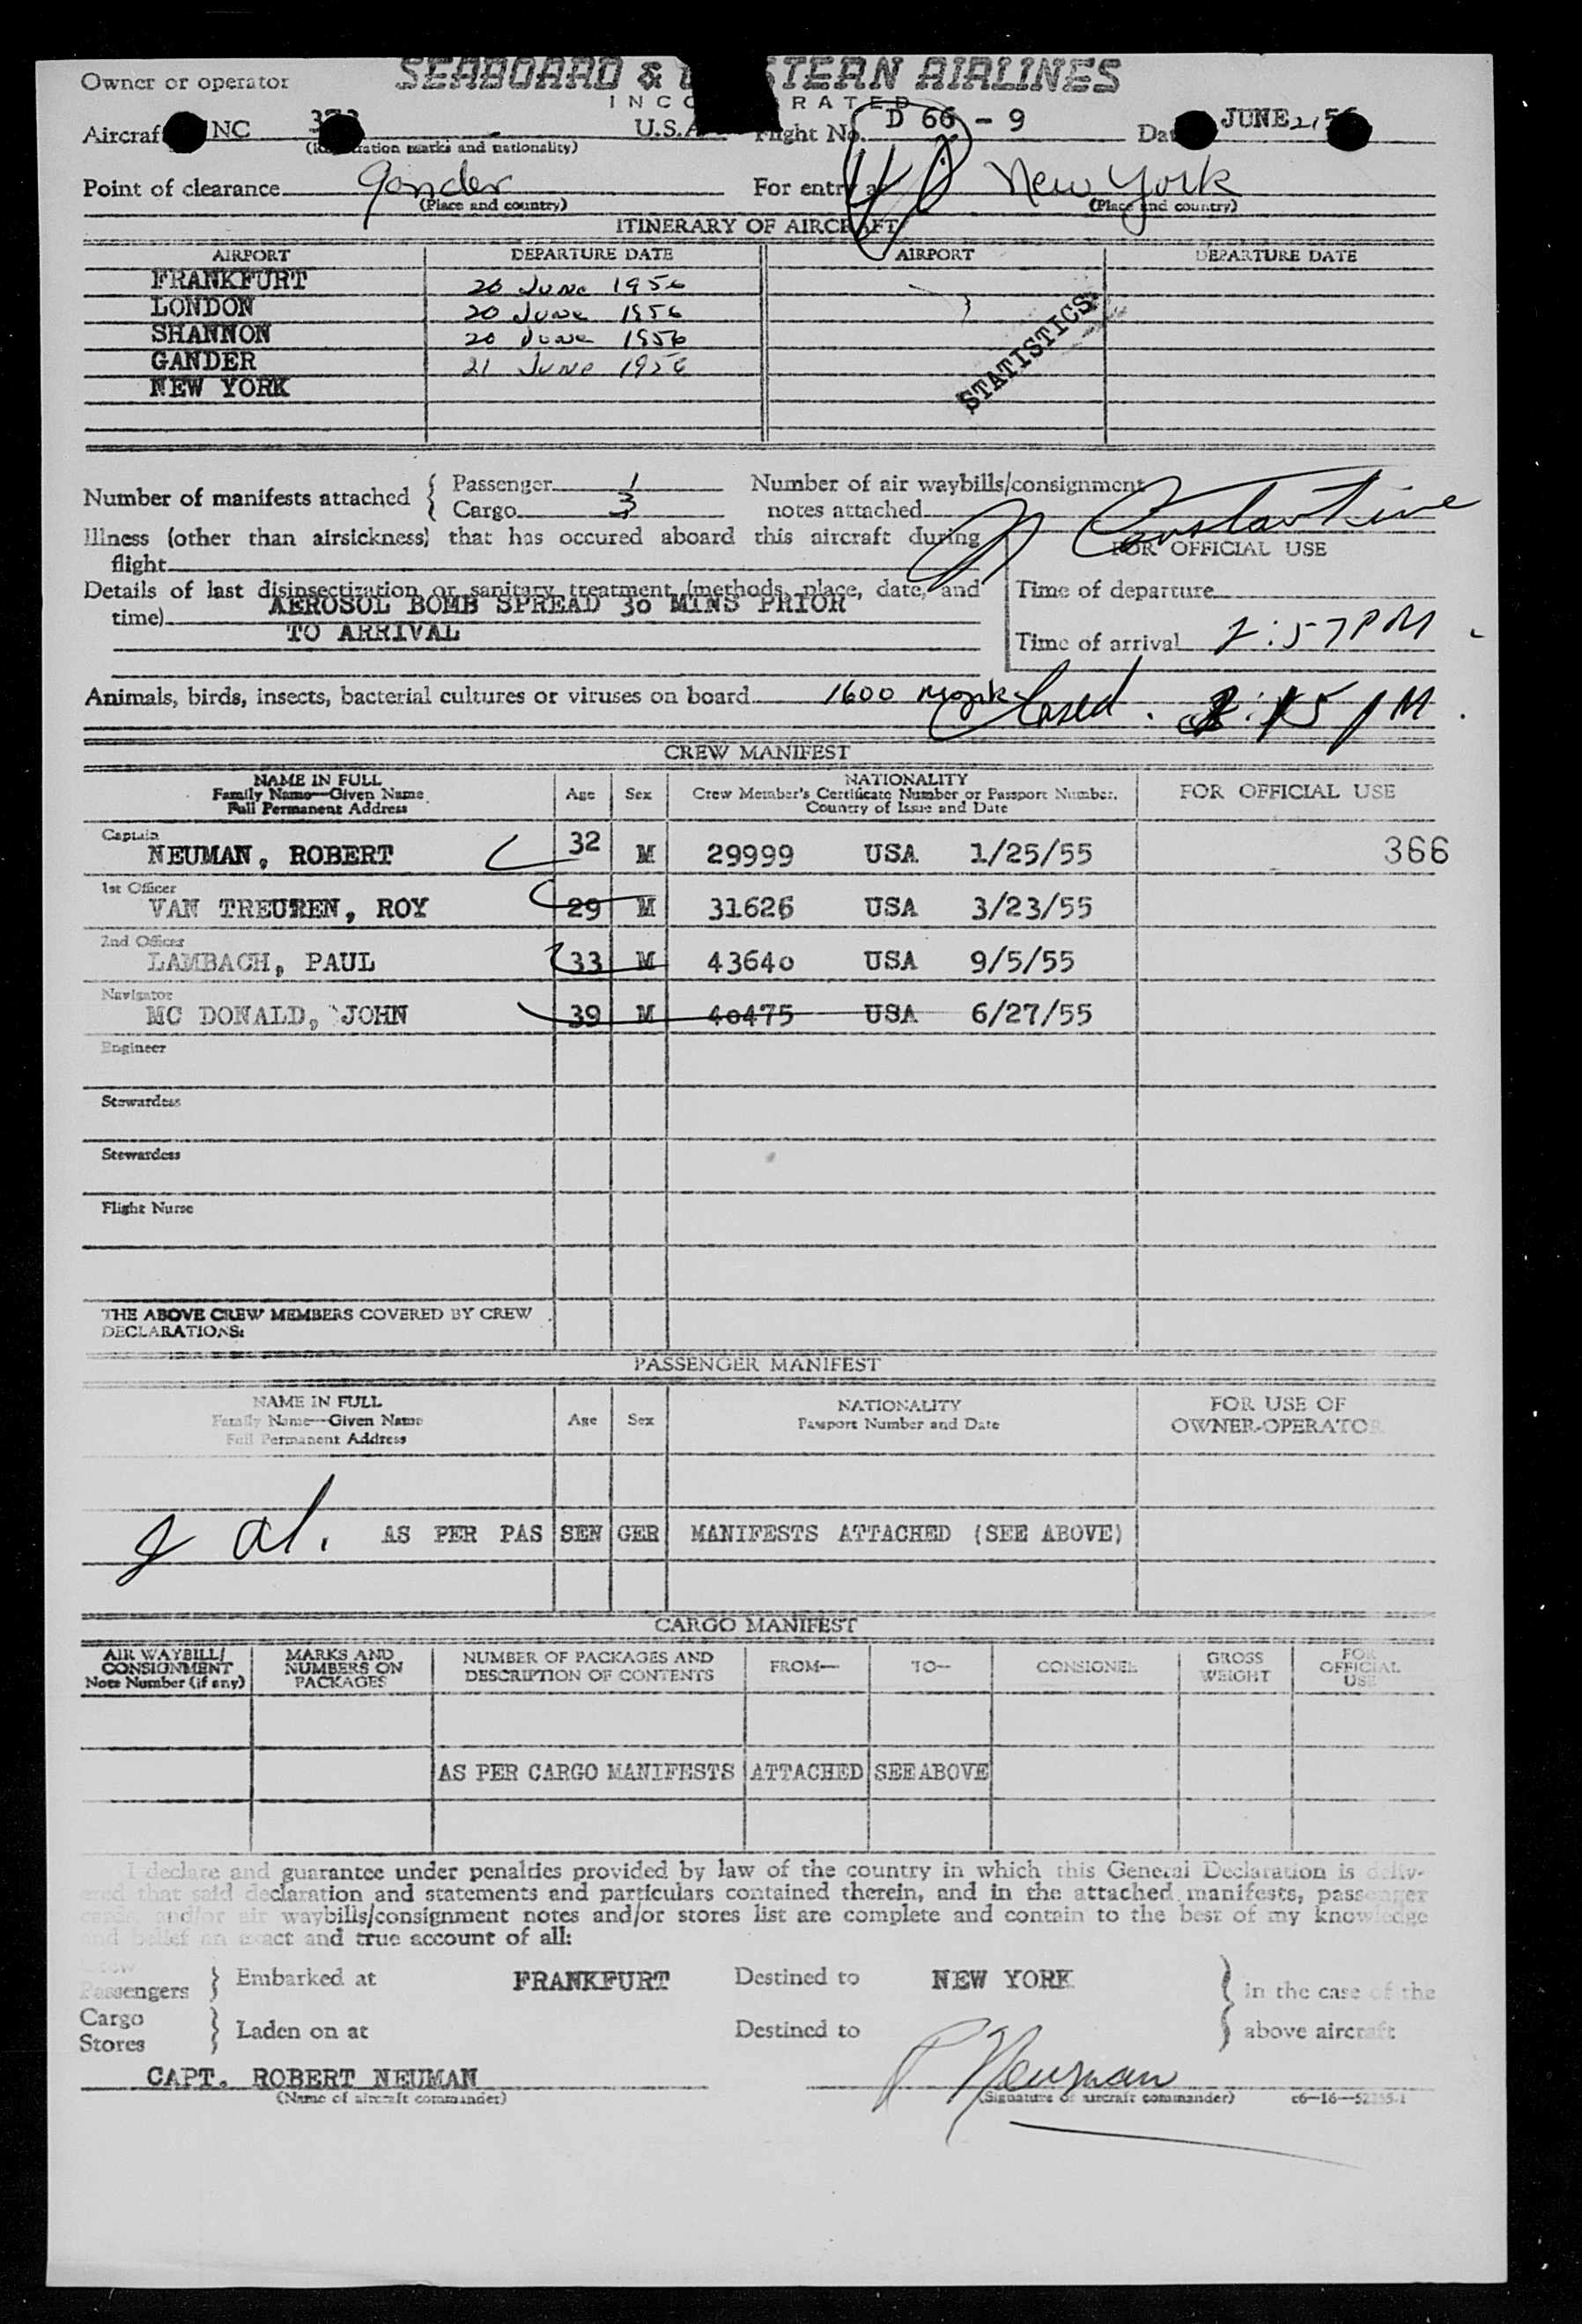 Owner or operator SEABOARD & STERN AIRLINES
INC RATED
Aircraf NC U.S.A. Flight No. D 66 - 9 Da JUNE 21, 5
(ation marks and nationality)
Point of clearance Gander For entry a New York
(Place and country) (Place and country)
ITINERARY OF AIRCRAFT
AIRPORT DEPARTURE DATE AIRPORT DEPARTURE DATE
FRANKFURT 20 June 1956
LONDON 20 June 1956
SHANNON 20 June 1956
GANDER 21 June 1956
NEW YORK
STATISTICS
Number of manifests attached { Passenger 1 Number of air waybills/consignment
Cargo 3 notes attached
Constantine
Illness (other than airsickness) that has occured aboard this aircraft during
flight
FOR OFFICIAL USE
Details of last disinsectization or sanitary treatment (methods, place, date, and
time) AEROSOL BOMB SPREAD 30 MINS PRIOR
TO ARRIVAL
Time of departure
Time of arrival 2:57 PM
Animals, birds, insects, bacterial cultures or viruses on board 1600 monk
Closed. :15 PM.
CREW MANIFEST
NAME IN FULL
Family Name—Given Name
Full Permanent Address
Age Sex
NATIONALITY
Crew Member's Certificate Number or Passport Number,
Country of Issue and Date
FOR OFFICIAL USE
Captain
NEUMAN, ROBERT 32 M 29999 USA 1/25/55 366
1st Officer
VAN TREUREN, ROY 29 M 31626 USA 3/23/55
2nd Officer
LAMBACH, PAUL 33 M 43640 USA 9/5/55
Navigator
MC DONALD, JOHN 39 M 40475 USA 6/27/55
Engineer
Stewardess
Stewardess
Flight Nurse
THE ABOVE CREW MEMBERS COVERED BY CREW
DECLARATIONS:
PASSENGER MANIFEST
NAME IN FULL
Family Name—Given Name
Full Permanent Address
Age Sex
NATIONALITY
Passport Number and Date
FOR USE OF
OWNER-OPERATOR
2 al. AS PER PAS SEN GER MANIFESTS ATTACHED (SEE ABOVE)
CARGO MANIFEST
AIR WAYBILL/
CONSIGNMENT
Note Number (if any)
MARKS AND
NUMBERS ON
PACKAGES
NUMBER OF PACKAGES AND
DESCRIPTION OF CONTENTS
FROM— TO— CONSIGNEE
GROSS
WEIGHT
FOR
OFFICIAL
USE
AS PER CARGO MANIFESTS ATTACHED SEE ABOVE
I declare and guarantee under penalties provided by law of the country in which this General Declaration is deliv-
ered that said declaration and statements and particulars contained therein, and in the attached manifests, passenger
cards and/or air waybills/consignment notes and/or stores list are complete and contain to the best of my knowledge
and belief an exact and true account of all:
Crew
Passengers } Embarked at FRANKFURT Destined to NEW YORK } in the case of the
Cargo
Stores } Laden on at Destined to } above aircraft
CAPT. ROBERT NEUMAN R Neuman
(Name of aircraft commander) (Signature of aircraft commander)